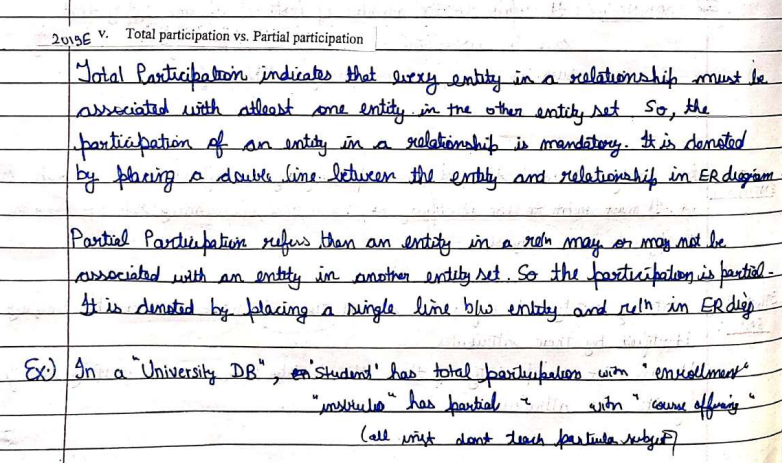 2019E v. Total participation vs. Partial participation
Total Participation indicates that every entity in a relationship must be
associated with atleast one entity in the other entity set So, the
participation of an entity in a relationship is mandatory. It is denoted
by placing a double line between the entity and relationship in ER diagram
Partial Participation refers than an entity in a reln may or may not be
associated with an entity in another entity set. So the participation is partial-
It is denoted by placing a single line b/w entity and reln in ER diag
Ex:) In a "University DB", 'Student' has total participation with "enrollment"
has partial with "course offering"
(all inst dont teach particula subject)